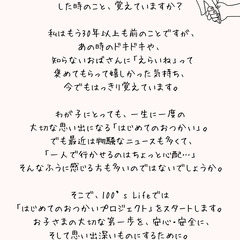 した時のこと、覚えていますか？
私はもう30年以上も前のことですが、
あの時のドキドキや、
知らないおばさんに「えらいね」って
褒めてもらって嬉しかった気持ち、
今でもはっきり覚えています。
わが子にとっても、一生に一度の
大切な思い出になる「はじめてのおつかい」。
でも最近は物騒なニュースも多くて、
「一人で行かせるのはちょっと心配…」
そんなふうに感じる方も多いのではないでしょうか。
そこで、100's Lifeでは
「はじめてのおつかいプロジェクト」をスタートします。
お子さまの大切な第一歩を、安心・安全に、
そして思い出深いものにするために。